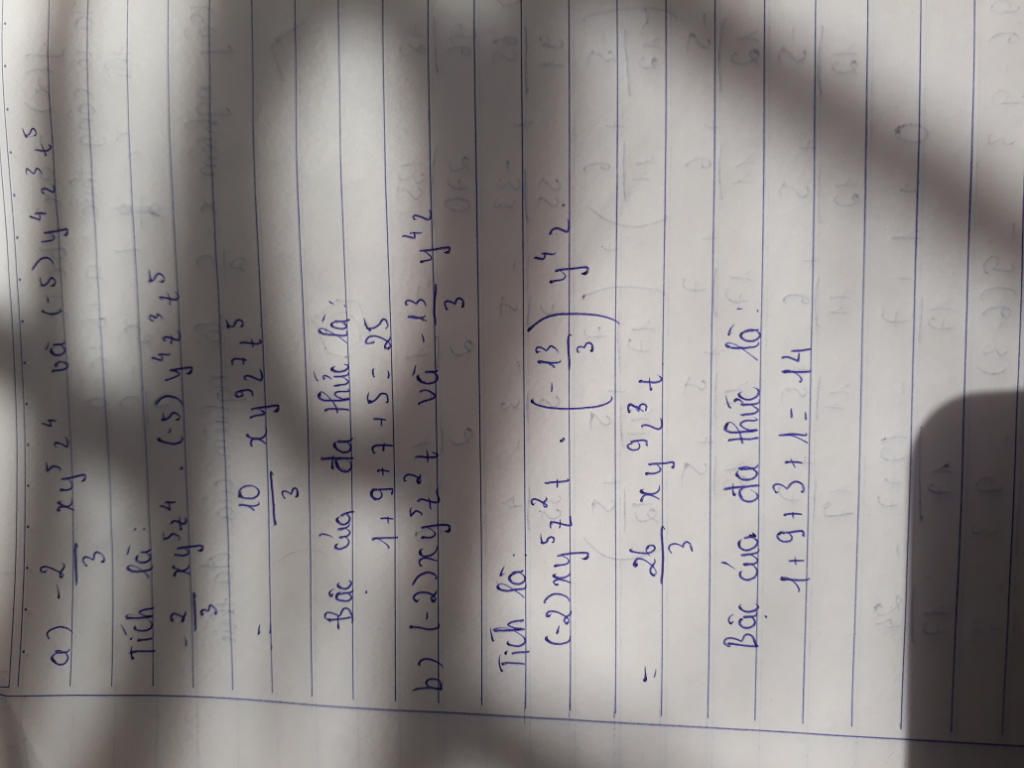 a) -2/3 xy⁵z⁴ và (-5)y⁴z³t⁵
Tích là:
-2/3 xy⁵z⁴ . (-5)y⁴z³t⁵
= 10/3 xy⁹z⁷t⁵
Bậc của đa thức là:
1+9+7+5=25
b) (-2)xy⁵z²t và -13/3 y⁴z
Tích là:
(-2)xy⁵z²t . (-13/3) y⁴z
= 26/3 xy⁹z³t
Bậc của đa thức là:
1+9+3+1=14